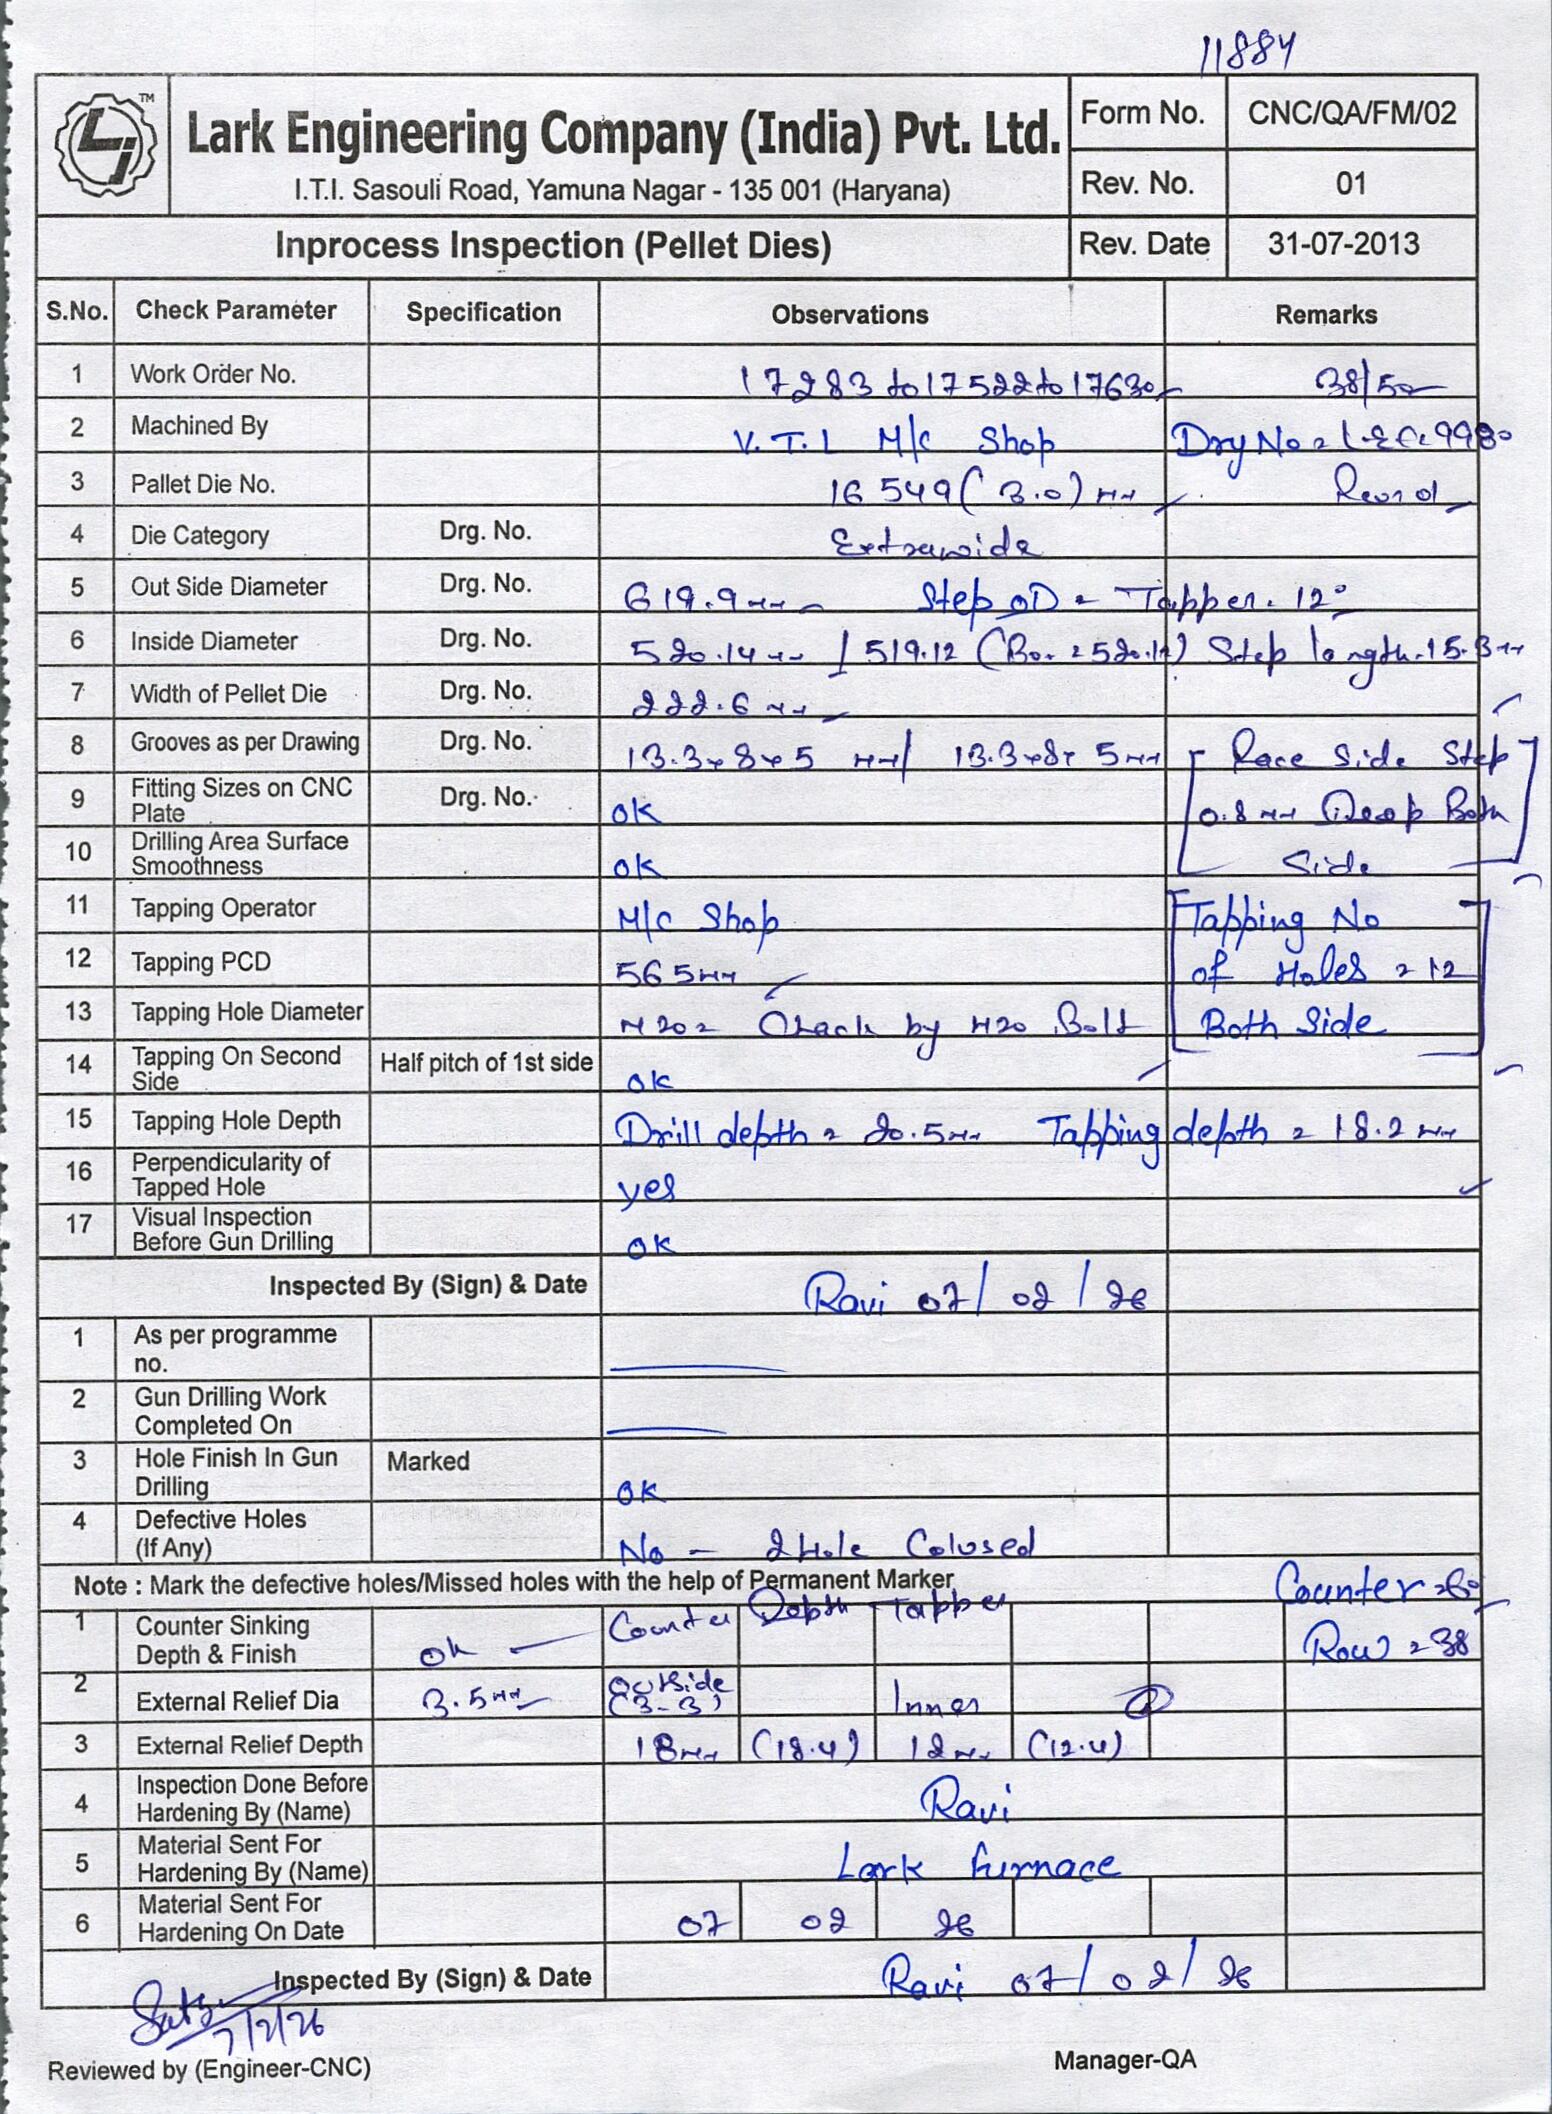 11884
Lark Engineering Company (India) Pvt. Ltd.
I.T.I. Sasouli Road, Yamuna Nagar - 135 001 (Haryana)
Form No. CNC/QA/FM/02
Rev. No. 01
Inprocess Inspection (Pellet Dies) Rev. Date 31-07-2013
S.No. Check Parameter Specification Observations Remarks
1 Work Order No. 17283 to 17522 to 17630 38/50
2 Machined By V.T.L M/c Shop
3 Pallet Die No. 16549 (3.0) mm
4 Die Category Drg. No. Extrawide
5 Out Side Diameter Drg. No. 619.9 mm Step OD = Tapper. 12°
6 Inside Diameter Drg. No. 520.14 mm / 519.12 Step length. 15.3 mm
7 Width of Pellet Die Drg. No. 222.6 mm
8 Grooves as per Drawing Drg. No. 13.3x8x5 mm / 13.3x8x5 mm Race Side Step
9 Fitting Sizes on CNC Plate Drg. No. ok 0.8 mm Deep Both
10 Drilling Area Surface Smoothness ok Side
11 Tapping Operator M/c Shop Tapping No
12 Tapping PCD 565 mm of Holes = 12
13 Tapping Hole Diameter M20 = Check by M20 Bolt Both Side
14 Tapping On Second Side Half pitch of 1st side ok
15 Tapping Hole Depth Drill depth = 20.5 mm Tapping depth = 18.2 mm
16 Perpendicularity of Tapped Hole yes
17 Visual Inspection Before Gun Drilling ok
Inspected By (Sign) & Date Ravi 07/02/26
1 As per programme no.
2 Gun Drilling Work Completed On
3 Hole Finish In Gun Drilling Marked ok
4 Defective Holes (If Any) No - 2 Hole Colused
Note : Mark the defective holes/Missed holes with the help of Permanent Marker
Counter = 60
1 Counter Sinking Depth & Finish ok Counter Depth Tapper Row = 38
2 External Relief Dia 3.5 mm Outside (3-3) Inner
3 External Relief Depth 18 mm (18.4) 12 mm (12.4)
4 Inspection Done Before Hardening By (Name) Ravi
5 Material Sent For Hardening By (Name) Lark furnace
6 Material Sent For Hardening On Date 07 02 26
Inspected By (Sign) & Date Ravi 07/02/26
7/2/26
Reviewed by (Engineer-CNC) Manager-QA